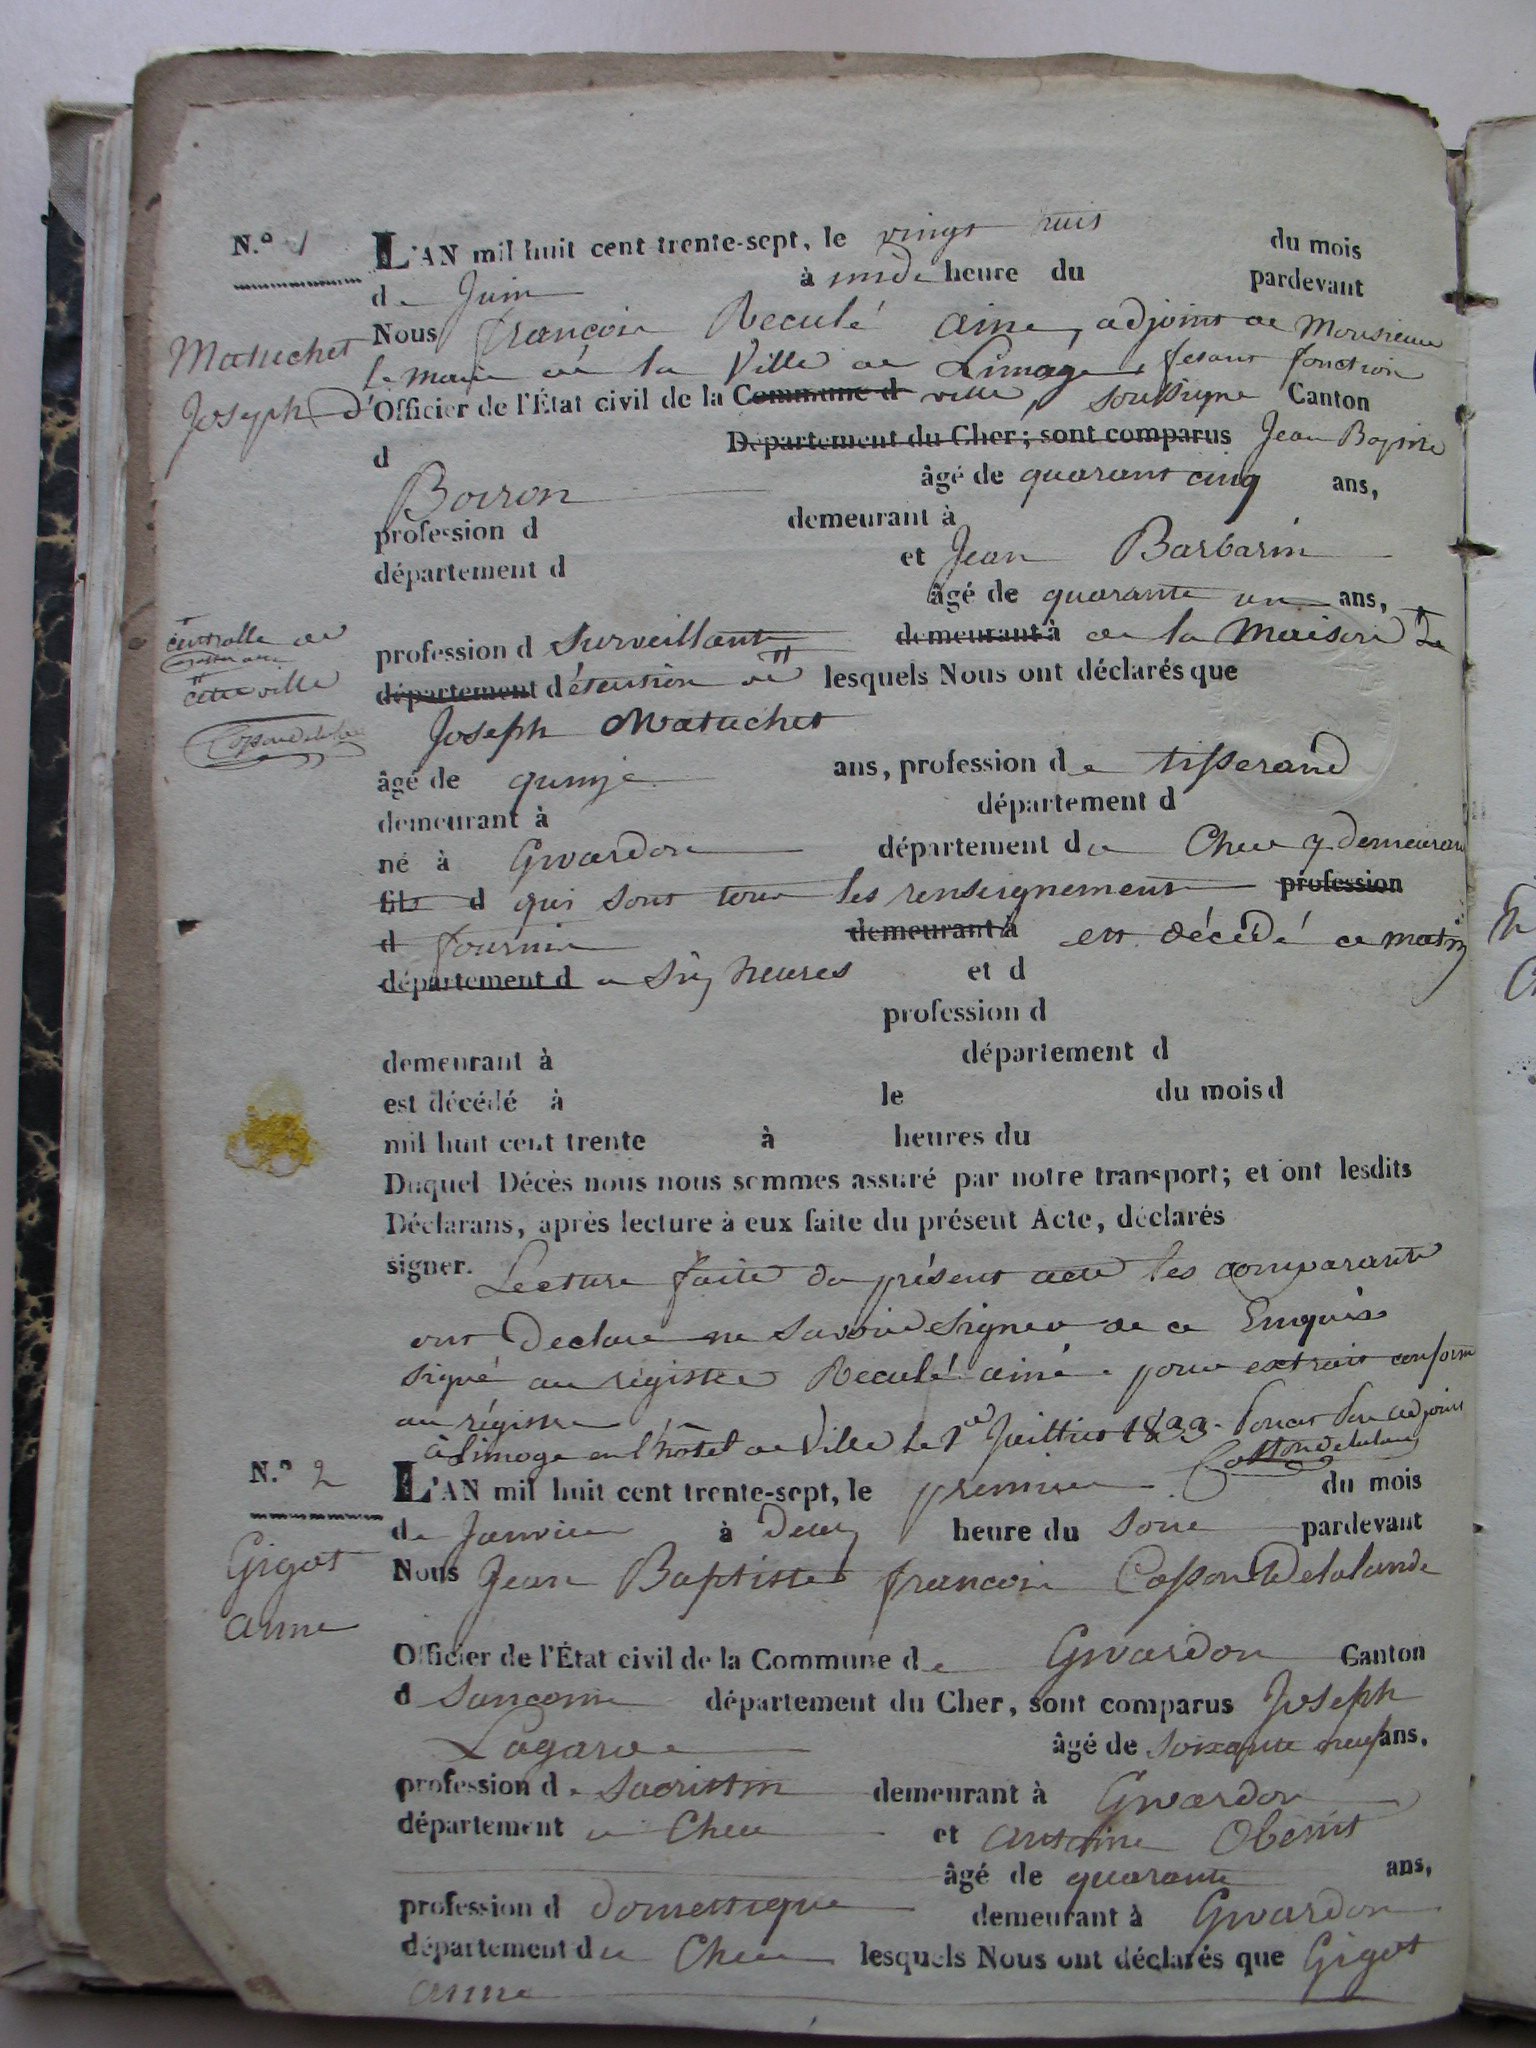 N.º 1
L'AN mil huit cent trente-sept, le vingt huit du mois
de Juin à midi heure du pardevant
Matuchet
Nous françois Reculé ainé, adjoint de Monsieur
le maire de la Ville de Limoge, fesant fonction
Joseph
d'Officier de l'État civil de la Commune d ville, soussigné Canton
d Département du Cher; sont comparus Jean Baptiste
Boiron âgé de quarant cinq ans,
profession d demeurant à
département d et Jean Barbarin
âgé de quarante un ans,
centralle de
cette ville
profession d Surveillants demeurant à de la Maison
département détention de lesquels Nous ont déclarés que
Joseph Matuchet
âgé de quinze ans, profession de tisserand
demeurant à département d
né à Givardon département du Cher y demeurant
fils d qui sont tous les renseignements profession
d fournis demeurant à est décédé ce matin
département d a six heures et d
profession d
demeurant à département d
est décédé à le du mois d
mil huit cent trente à heures du
Duquel Décès nous nous sommes assuré par notre transport; et ont lesdits
Déclarans, après lecture à eux faite du présent Acte, déclarés
signer. Lecture faite du présent acte les comparants
ont declaré ne savoir signer de ce Enquis
signé au régistre Reculé ainé pour extrait conforme
au régistre
à Limoge en l'hôtel de Ville le 1er Juillet
N.º 2
L'AN mil huit cent trente-sept, le premier du mois
de Janvier à Deux heure du soir pardevant
Gigot
anne
Nous Jean Baptiste françois Cosson Delalande
Officier de l'État civil de la Commune de Givardon Canton
d Sancoin département du Cher, sont comparus Joseph
Lagarde âgé de soixante neuf ans,
profession de Sacristin demeurant à Givardon
département du Cher et antoine
âgé de quarante ans,
profession d domestique demeurant à Givardon
département du Cher lesquels Nous ont déclarés que Gigot
anne